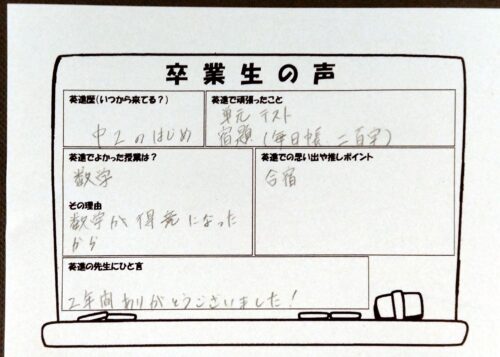 卒業生の声
英進歴(いつから来てる?)
中2のはじめ
英進で頑張ったこと
単元テスト
宿題(毎日帳 二百字)
英進でよかった授業は?
数学
その理由
数学が得意になった
から
英進での思い出や推しポイント
合宿
英進の先生にひと言
2年間ありがとうございました!